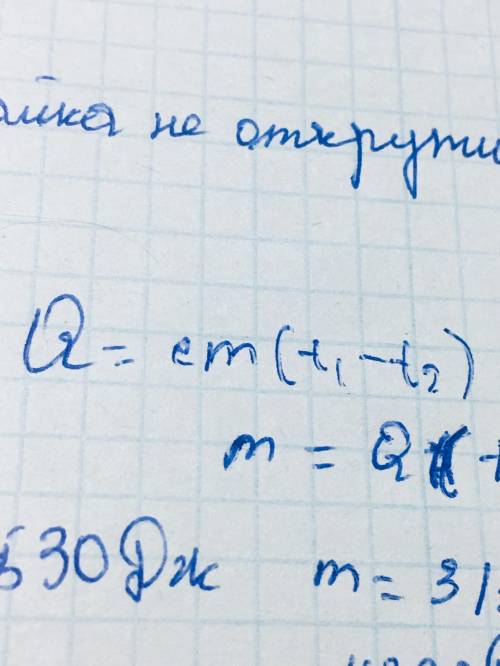 не открути
Q = cm(t₁ - t₂)
m = Q
530 Дж m = 31